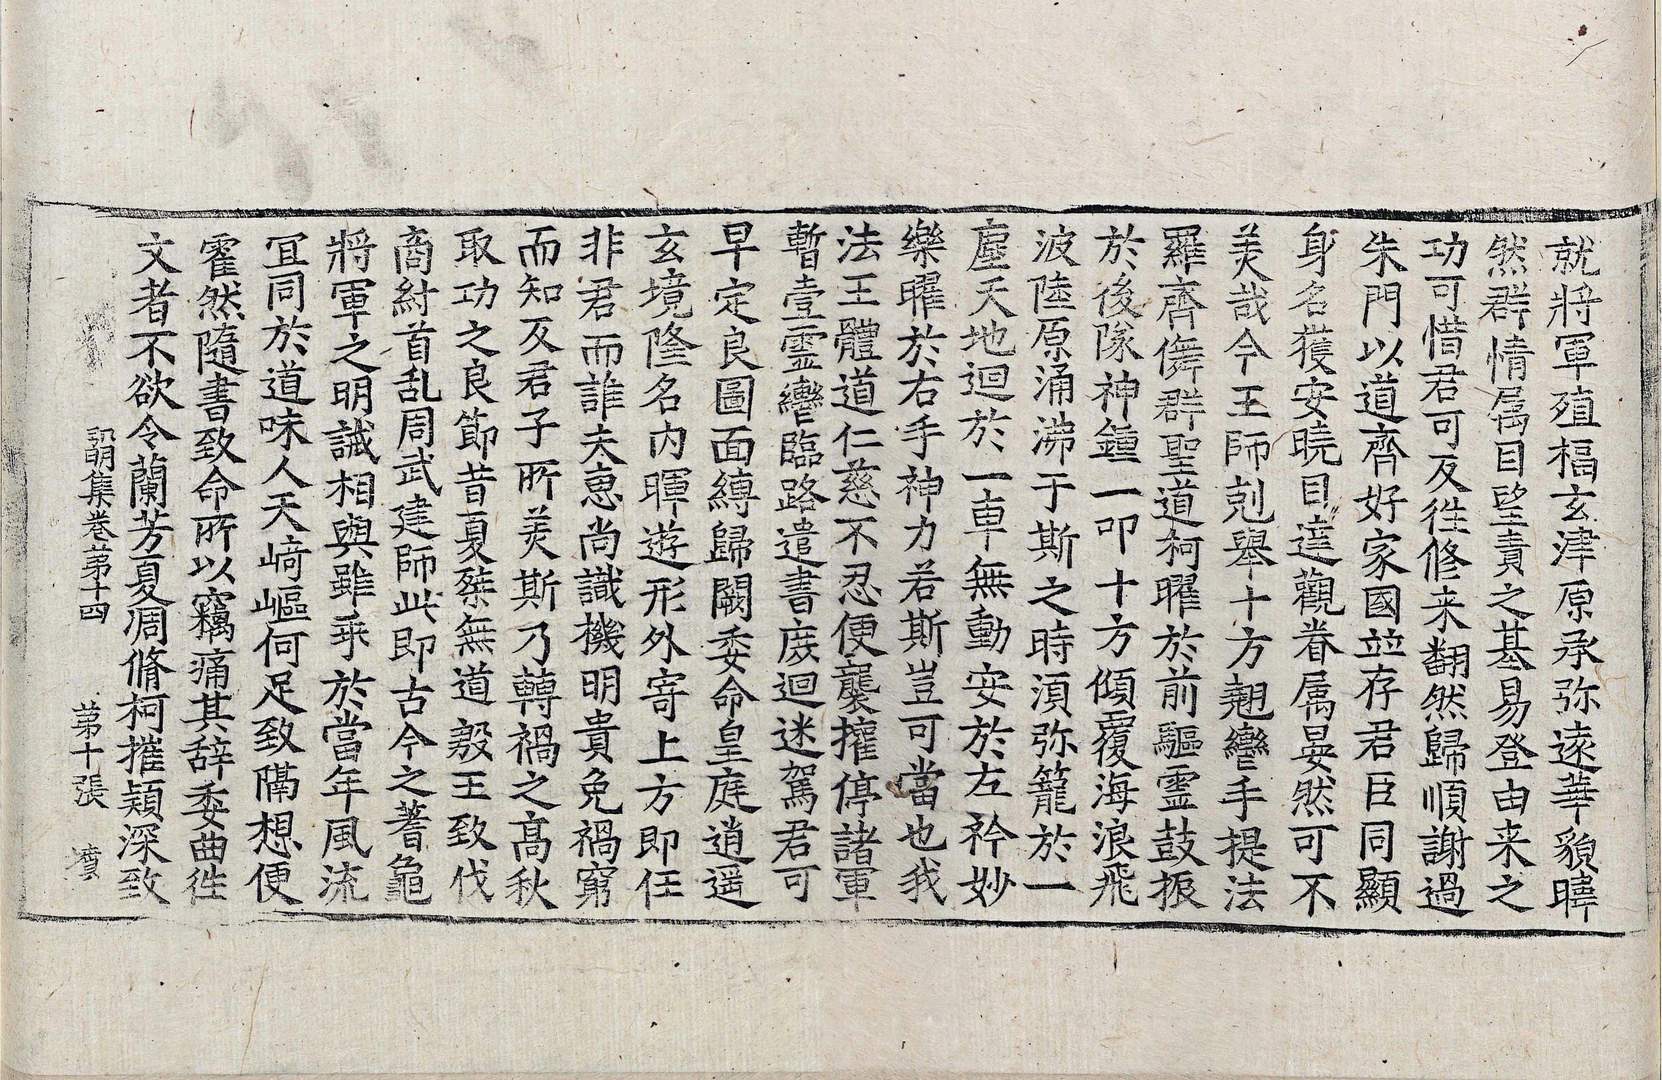 就將軍殖福玄津原承弥遠華貌暐
然群情属目望責之基易登由来之
功可惜君可反往修来翻然歸順謝過
朱門以道齊好家國並存君臣同顯
身名獲安曉目達觀眷属晏然可不
美哉今王師剋舉十方翹轡手提法
羅齊儛群聖道柯曜於前驅霊鼓振
於後隊神鍾一叩十方傾覆海浪飛
波陸原涌沸于斯之時湏弥籠於一
塵天地迴於一車無動安於左衿妙
樂曜於右手神力若斯豈可當也我
法王體道仁慈不忍便襲摧停諸軍
暫壹霊轡臨路遣書庶迴迷駕君可
早定良圖面縛歸闕委命皇庭逍遥
玄境隆名内暉遊形外寄上方即任
非君而誰夫恵尚識機明貴免禍窮
而知反君子所美斯乃轉禍之髙秋
取功之良節昔夏桀無道殷王致伐
商紂首乱周武建師此即古今之蓍龜
將軍之明誡相與雖乖於當年風流
冝同於道味人天崎嶇何足致隔想便
霍然隨書致命所以竊痛其辞委曲徃
文者不欲令蘭芳夏凋脩柯摧穎深致
弘明集卷第十四 第十張